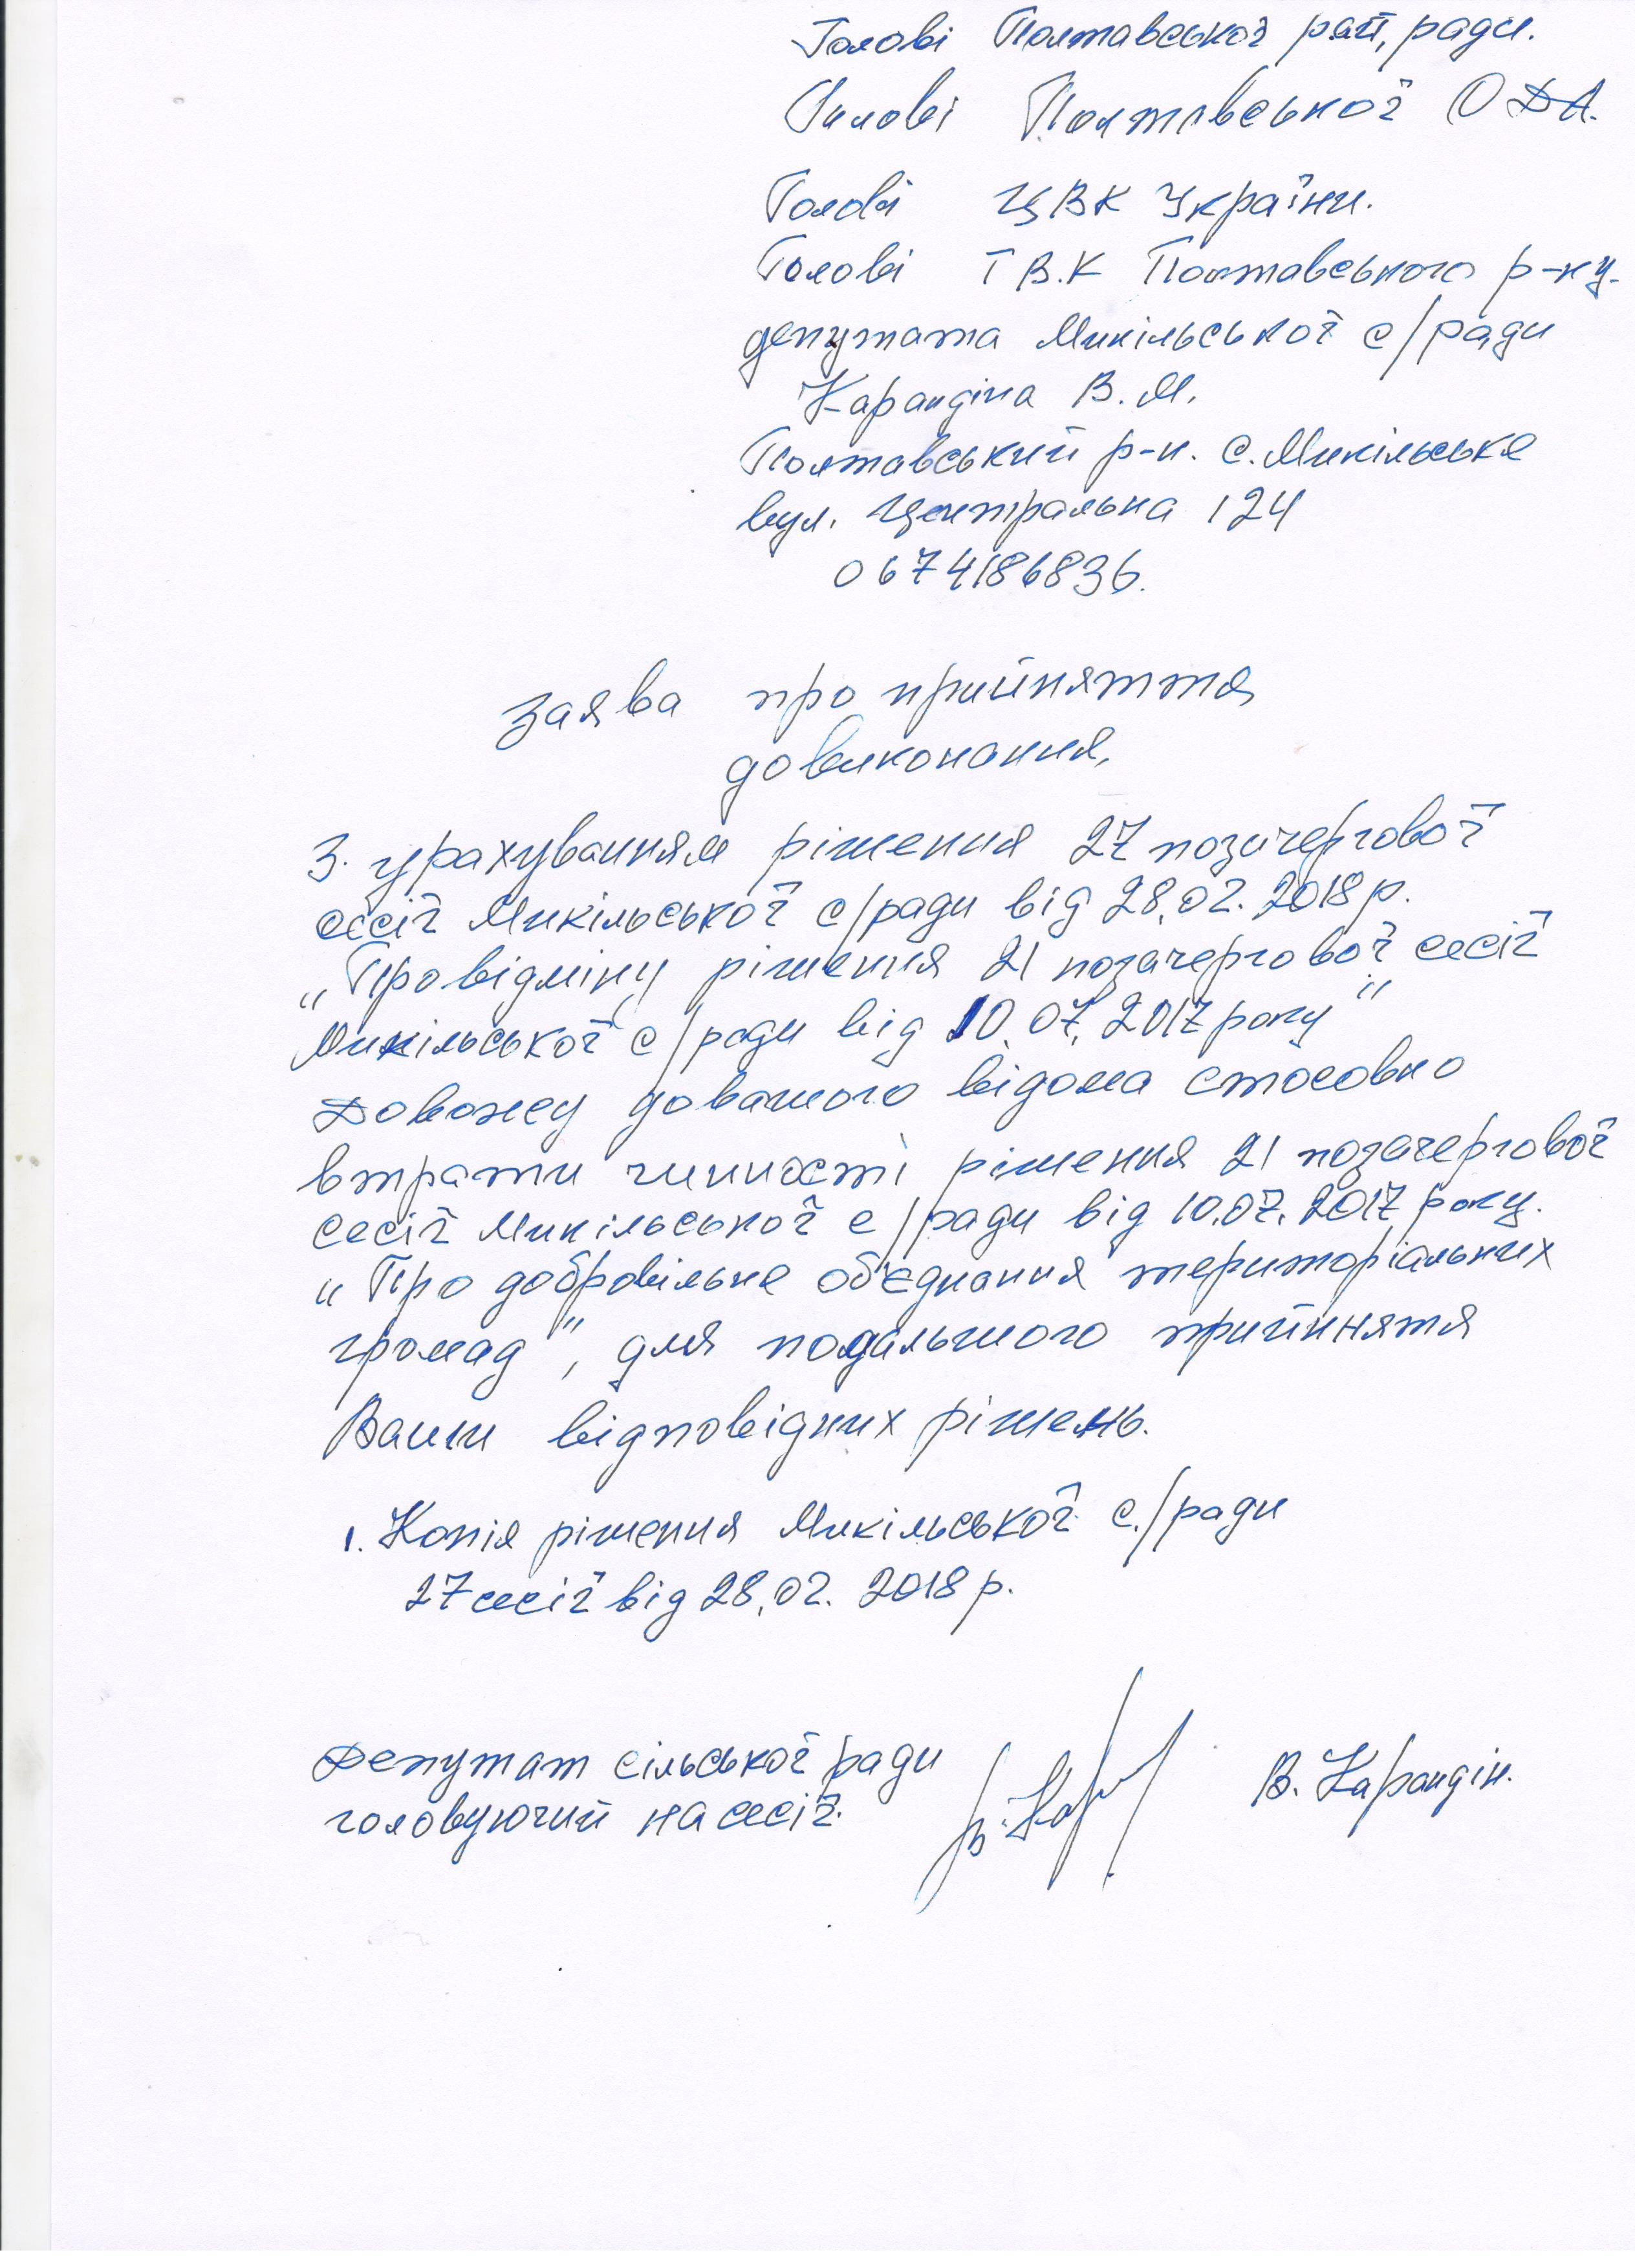 Голові Полтавської рай, ради.
Голові Полтавської ОДА.
Голові ЦВК України.
Голові ТВ.К Полтавського р-ну.
депутата Микільської с/ради
Карандіна В.М.
Полтавський р-н. с. Микільське
вул. Центральна 124
0674186836.
Заява про прийняття
до виконання,
З. урахуванням рішення 27 позачергової
сесії Микільської с/ради від 28.02.2018р.
„Про відміну рішення 21 позачергової сесії
Микільської с/ради від 10.07.2017 року"
Довожу до вашого відома стосовно
втрати чинності рішення 21 позачергової
сесії Микільської с/ради від 10.07.2017 року.
„Про добровільне об'єднання територіальних
громад", для подальшого прийнятя
Вами відповідних рішень.
1. Копія рішення Микільської с./ради
27 сесії від 28.02.2018р.
Депутат сільської ради
головуючий на сесії.
В. Карандін.